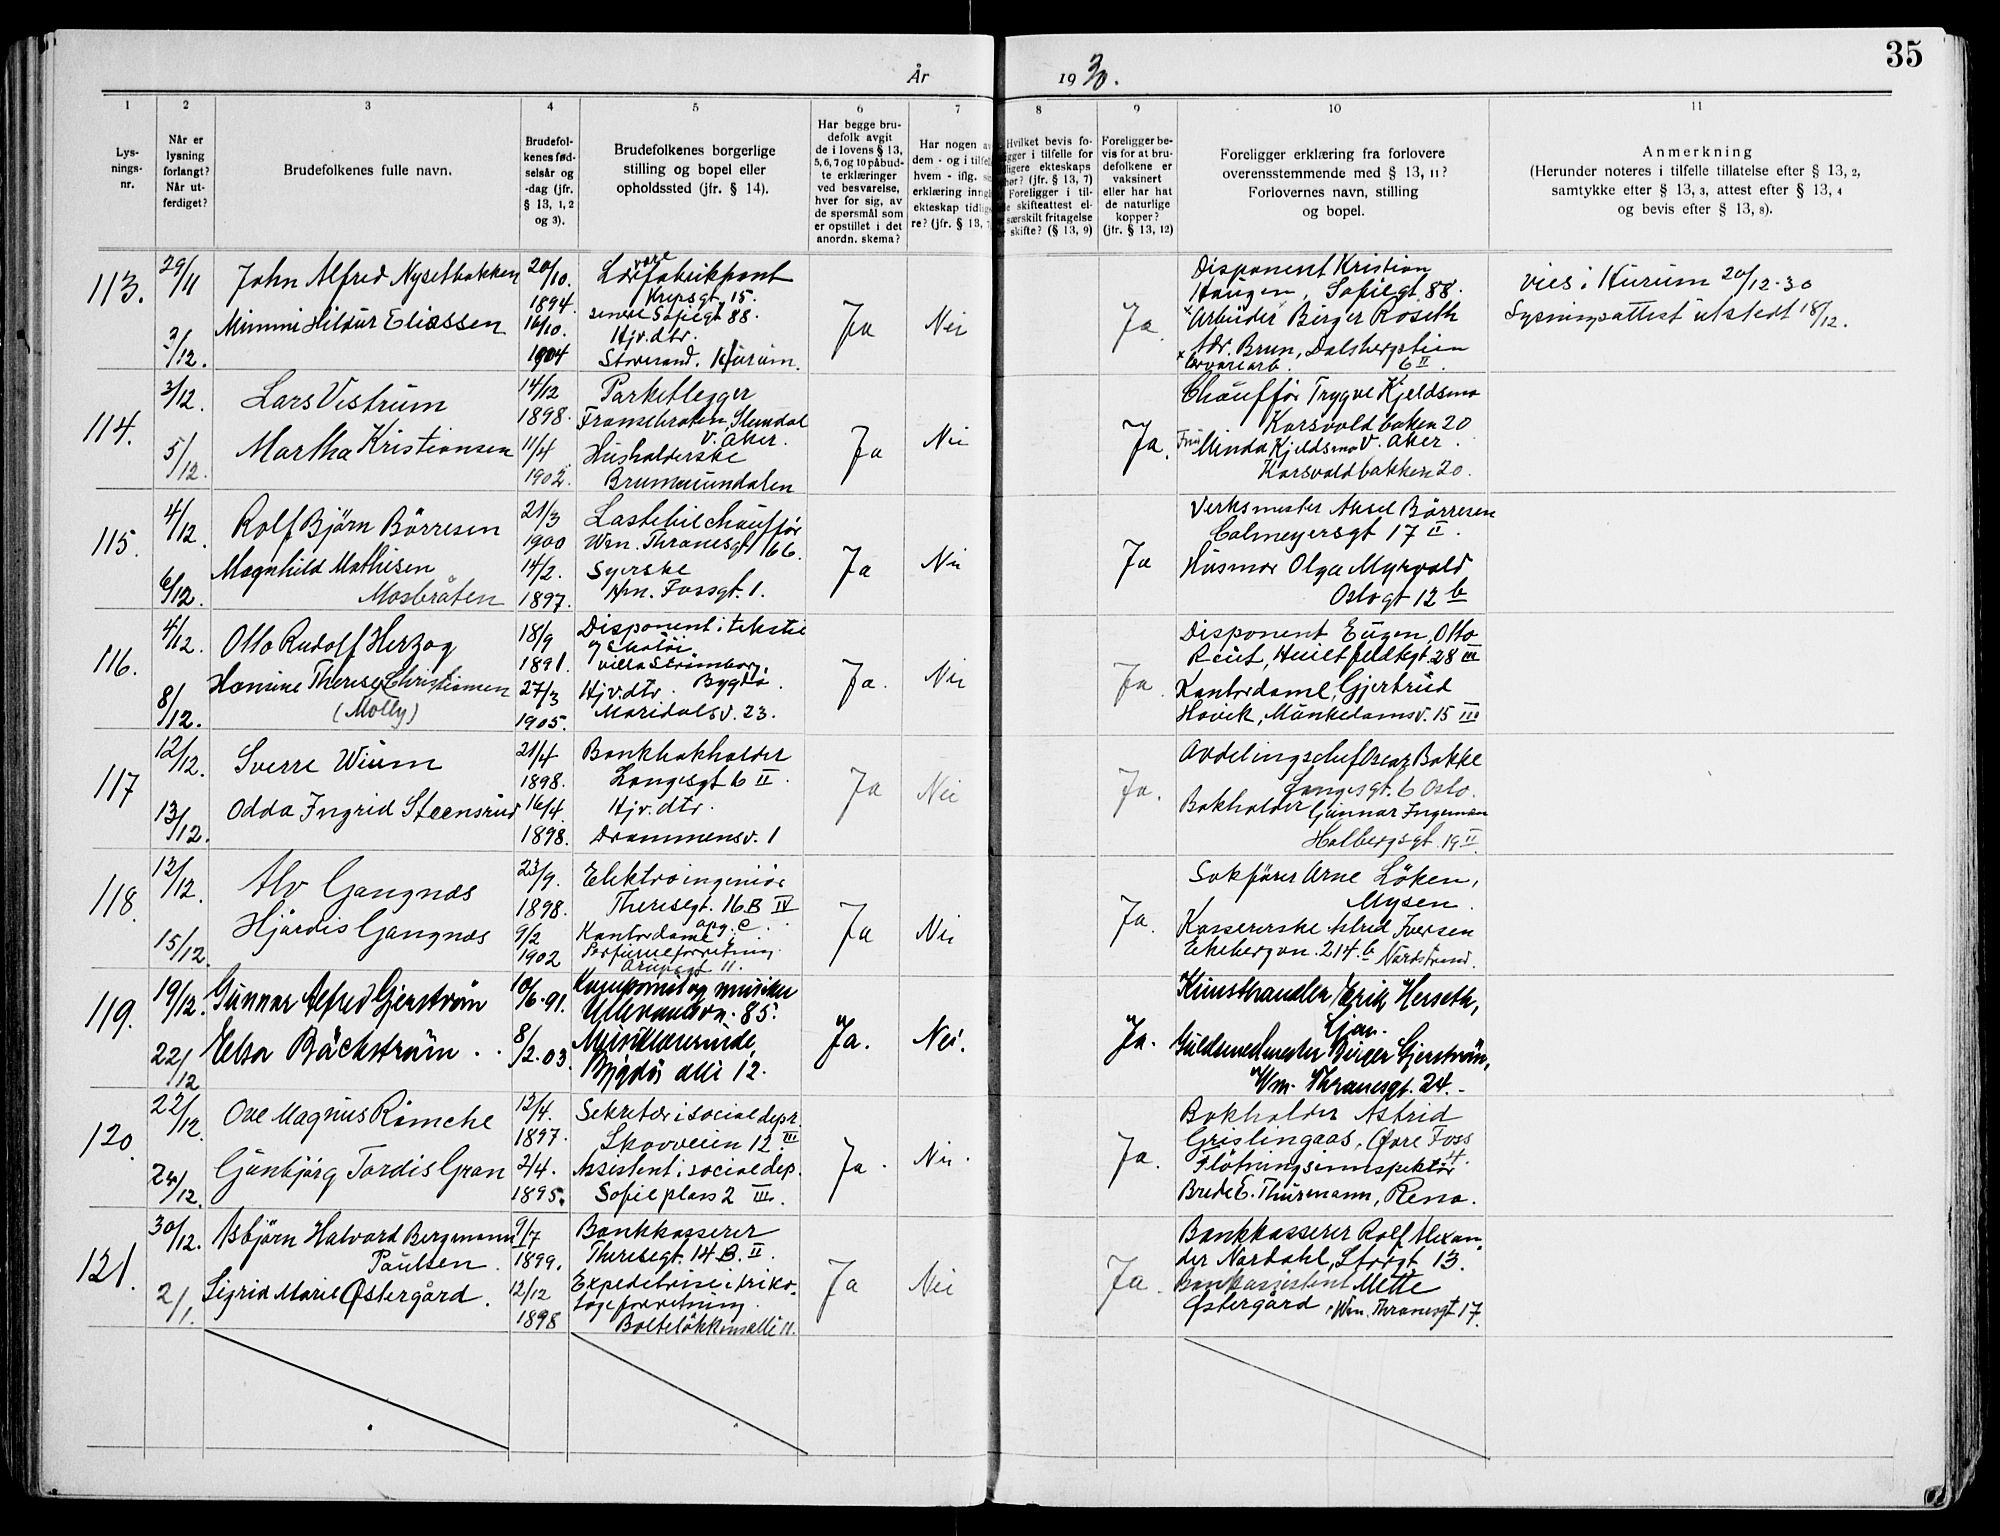 35
År 1930.
1 2 3 4 5 6 7 8 9 10 11
Lys-
nings-
nr.
Når er
lysning
forlangt?
Når ut-
ferdiget?
Brudefolkenes fulle navn.
Brudefol-
kenes fød-
selsår og
-dag (jfr.
§ 13, 1, 2
og 3).
Brudefolkenes borgerlige
stilling og bopel eller
opholdssted (jfr. § 14).
Har begge bru-
defolk avgit
de i lovens § 13,
5, 6, 7 og 10 påbud-
te erklæringer
ved besvarelse,
hver for sig, av
de spørsmål som
er opstillet i det
anordn. skema?
Har nogen a
dem - og i tilfelle
hvem - iflg.
erklæring inng
ekteskap tidlig
re? (jfr. § 13,
Hvilket bevis fo-
gger i tilfelle for
ligere ekteskaps
hør? (jfr. § 13, 7)
Foreligger i til-
le skifteattest el-
særskilt fritagelse
skifte? (§ 13, 9)
Foreligger be-
vis for at bru-
defolkene er
vaksinert
eller har hat
de naturlige
kopper?
(jfr. § 13, 12)
Foreligger erklæring fra forlovere
overensstemmende med § 13, 11?
Forlovernes navn, stilling
og bopel.
Anmerkning
(Herunder noteres i tilfelle tillatelse efter § 13, 2,
samtykke efter § 13, 3, attest efter § 13, 4
og bevis efter § 13, 8).
113.
29/11
2/12.
John Alfred Nysetbakken
Mimmi Hildur Eliassen
20/10.
1894.
16/10.
1904
Lærvarefabrikant
Krepsgt. 15.
senere Sofiegt 88.
Hjv. dtr.
Storsand. Hurum.
Ja
Nei
Ja.
Disponent Kristian
Haugen, Sofiegt. 88.
x Arbeider Berger Roseth
Adr. Brun, Dalsbergstien
x lærvarearb. 6 II.
vies i Hurum 20/12-30
Lysningsattest utstedt 18/12.
114.
3/12.
5/12.
Lars Vistrum
Martha Kristiansen
14/12
1898.
11/4
1902.
Parketlegger
Fransebråten, Slemdal
V. Aker.
Husholderske
Brumunddalen
Ja
Nei
Ja.
Chauffør Trygve Kjeldsmo
Korsvoldbakken 20
V. Aker.
Fru Minda Kjeldsmo
Korsvoldbakken 20.
115.
4/12.
6/12.
Rolf Bjørn Børresen
Magnhild Mathisen
Mosbråten
21/3
1900
14/2.
1897.
Lastebilchauffør
Wm. Thranesgt 66.
Syerske
Hm. Fossgt. 1.
Ja
Nei
Ja
Verksmester Aksel Børresen
Calmeyersgt 17 II.
Husmor Olga Myrvold
Oslogt 12 b
116.
4/12.
8/12.
Otto Rudolf Herzog
Hansine Therese Christiansen
(Molly)
18/9
1891.
27/3
1905.
Disponent i tekstil
og skotøi
villa Strømborg.
Bygdø.
Hjv. dtr.
Maridalsv. 23.
Ja.
Nei
Ja.
Disponent Eugen Otto
Reut, Huitfeldtsgt. 28 III
Kontordame, Gjertrud
Hovik, Munkedamsv. 15 III
117
12/12.
13/12.
Sverre Wium
Odda Ingrid Steensrud
21/4
1898.
16/4.
1898.
Bankbokholder
Langesgt 6 II.
Hjv. dtr.
Drammensv. 1
Ja
Nei
Ja.
Avdelingschef Oscar Bakke
Langesgt. 6 Oslo.
Bokholder Gunnar Ingeman
Holbergsgt. 19 II.
118.
13/12.
15/12.
Alv Gangnæs
Hjørdis Gangnæs
23/9.
1898.
9/2
1902
Elektroingeniør
Theresegt. 16 B IV
opg. C.
Kontordame i
Parfumeforretning
Arupsgt 11.
Ja
Nei
Ja.
Sakfører Arne Løken,
Mysen.
Kassererske Astrid Iversen
Ekebergvn. 214 b Nordstrand.
119.
19/12.
22/12
Gunnar Alfred Gjerstrøm
Elsa Bäckström.
10/6.91.
8/2.03.
Komponist og musiker
Ullevaalsvn. 85.
Musiklærerinde,
Bygdø alle 12.
Ja.
Nei.
Ja.
Kunsthandler Erik Herseth,
Ljan.
Guldsmedmester Birger Gjerstrøm,
Wm. Thranesgt. 24.
120.
22/12.
24/12.
Ove Magnus Römcke
Gunbjørg Tordis Gran
12/4.
1897.
2/4.
1895.
Sekretær i socialdepr.
Skovveien 12 III
Assistent i socialdep.
Sofie plass 2 III.
Ja.
Nei.
Ja.
Bokholder Astrid
Grislingaas, Øvre Foss
4.
Fløtningsinnspektør
Brede E. Thurmann, Rena.
121.
30/12.
2/1.
Asbjørn Halvard Bergmann
Paulsen.
Sigrid Marie Østergård.
9/7
1899.
12/12
1898
Bankkasserer
Theresegt. 14 B. II.
Expeditrise i triko-
tageforretning.
Bolteløkkensalle 11.
Ja
Nei
Ja.
Bankkasserer Rolf Alexan-
der Nordahl, Storgt 13.
Bankassistent Mette
Østergård, Wm. Thranesgt 17.